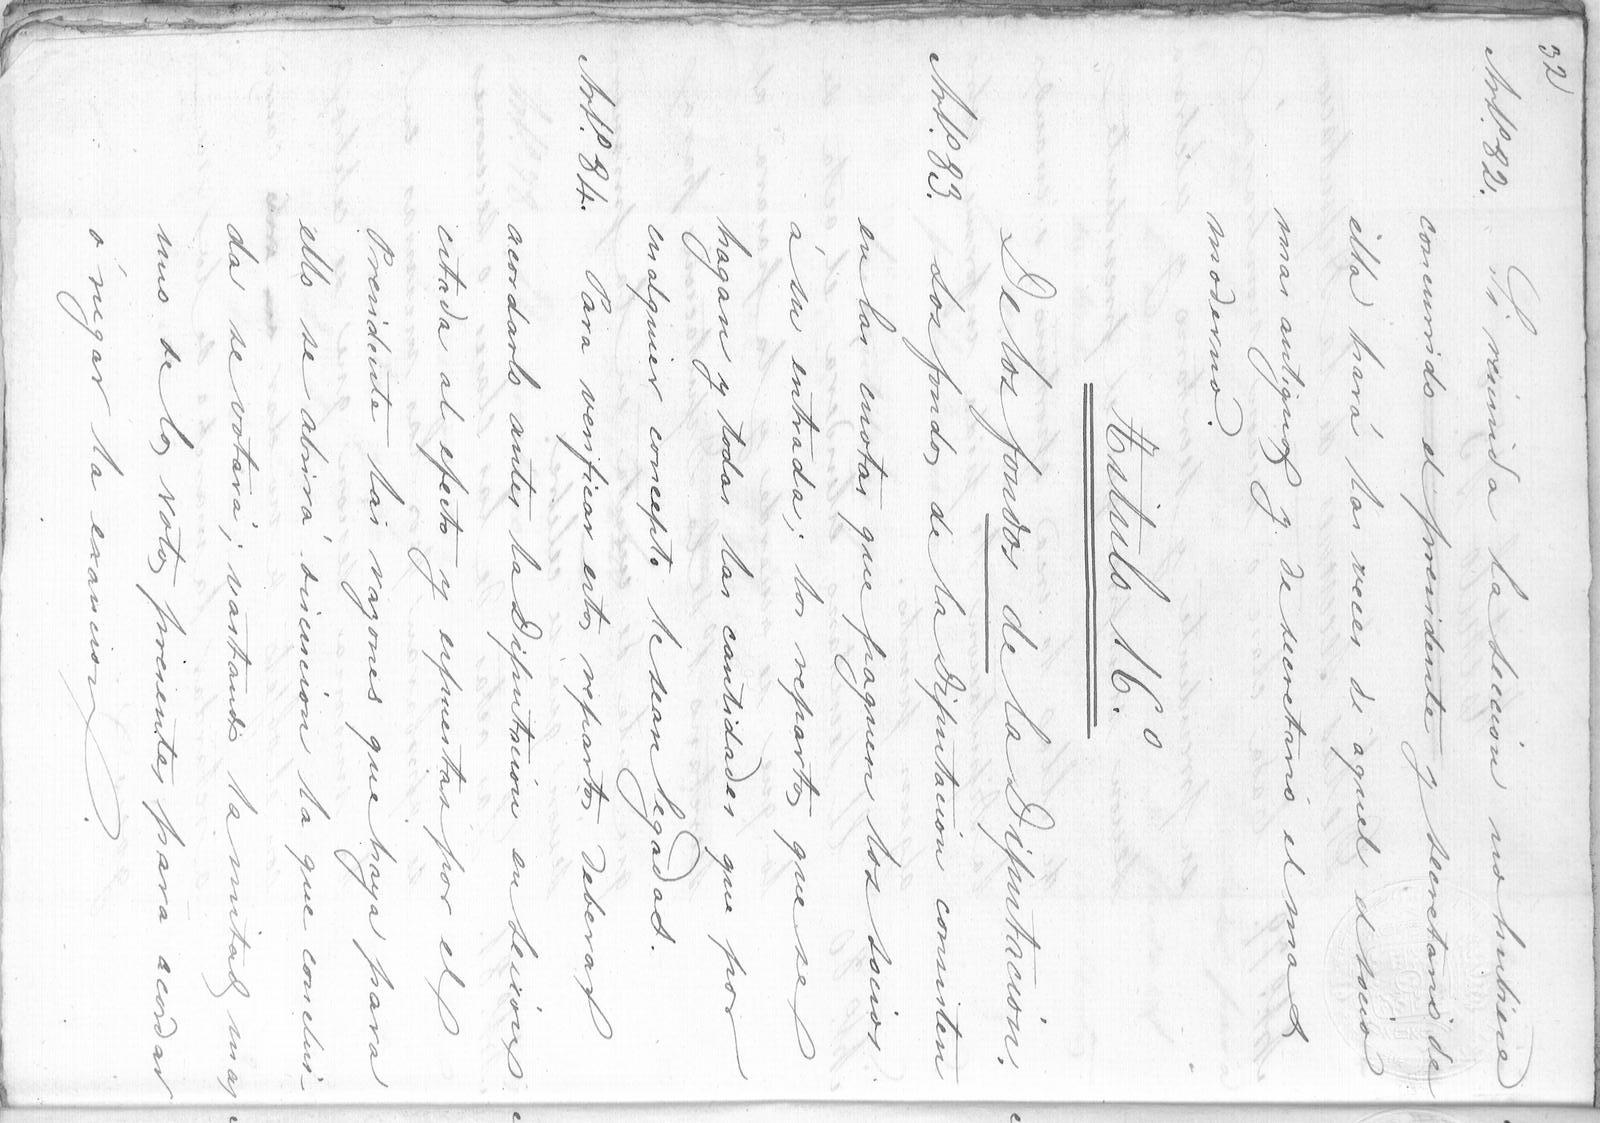 32
Artº 82. Si reunida la seccion no hubiere
concurrido el presidente y secretario de
ella hará las veces de aquel el socio
mas antiguo y de secretario el mas
moderno.
Titulo 16.º
De los fondos de la Diputacion.
Artº 83. Los fondos de la Diputacion consisten
en las cuotas que paguen los socios
á su entrada; los repartos que se
hagan y todas las cantidades que por
cualquier concepto le sean legadas.
Artº 84. Para verificar estos repartos deberá
acordarlo antes la Diputacion en sesion
citada al efecto y espuestas por el
Presidente las razones que haya para
ello se abrirá discusion la que conclui-
da se votará; vastando la mitad mas
uno de los votos presentes para acordar
o negar la exaccion.